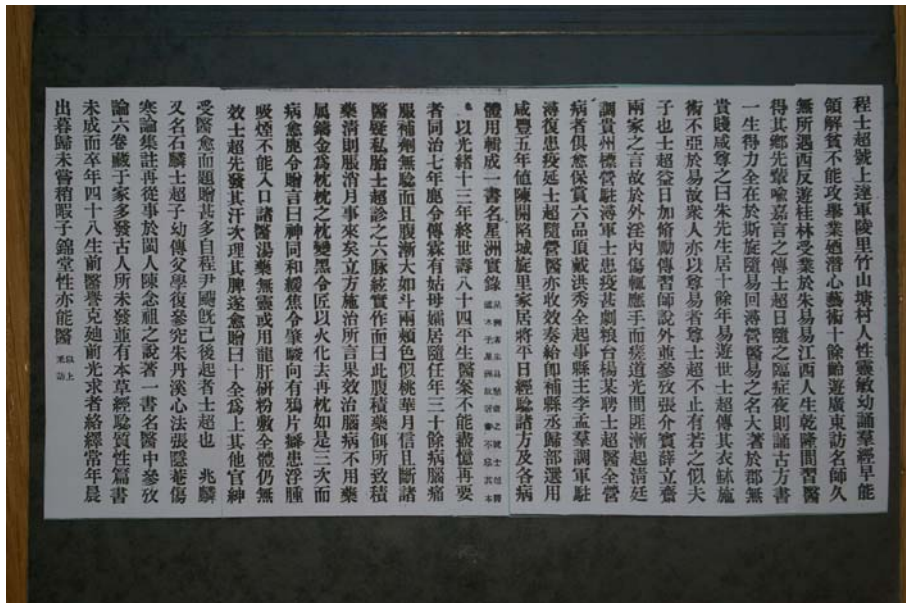 程士超號上達軍陵里竹山塘村人性靈敏幼誦羣經早能
領解貧不能攻舉業廼潛心藝術十餘齡遊廣東訪名師久
無所遇西反遊桂林受業於朱易易江西人生乾隆間習醫
得其鄉先輩喻嘉言之傳士超日隨之臨症夜則誦古方書
一生得力全在於斯旋隨易回潯營醫易之名大著於郡無
貴賤咸尊之曰朱先生居十餘年易遊世士超傳其衣鉢施
術不亞於易故衆人亦以尊易者尊士超不止有若之似夫
子也士超益日加脩勵傳習師說外並參攷張介賓薛立齋
兩家之言故於外淫內傷輒應手而瘥道光間匪漸起清廷
調貴州標營駐潯軍士患疫甚劇粮台楊某聘士超醫全營
病者俱愈保賞六品頂戴洪秀全起事縣主李孟羣調軍駐
潯復患疫延士超隨營醫亦收效奏給即補縣丞歸部選用
咸豐五年值陳開陷城旋里家居將平日經驗諸方及各病
體用輯成一書名星洲實錄
以光緒十三年終世壽八十四平生醫案不能盡憶再要
者同治七年鹿令傳霖有姑母孀居隨任年三十餘病腦痛
服補劑無驗而且腹漸大如斗兩頰色似桃華月信且斷諸
醫疑私胎士超診之六脉絃實作而曰此腹積藥餌所致積
藥清則脹消月事來矣立方施治所言果效治腦病不用藥
属鑄金爲枕枕之枕變黑令匠以火化去再枕如是三次而
病愈鹿令贈言曰神同和緩焦令肇駿向有鴉片癮患浮腫
吸煙不能入口諸醫湯藥無靈或用龍肝研粉敷全體仍無
效士超先發其汗次理其脾遂愈贈曰十全爲上其他官紳
受醫愈而題贈甚多自程尹颺旣已後起者士超也　兆麟
又名石麟士超子幼傳父學復參究朱丹溪心法張隱菴傷
寒論集註再從事於閩人陳念祖之說著一書名醫中參攷
論六卷藏于家多發古人所未發並有本草經驗質性篇書
未成而卒年四十八生前醫譽克廸前光求者絡繹常年晨
出暮歸未嘗稍暇子錦堂性亦能醫
以上采訪